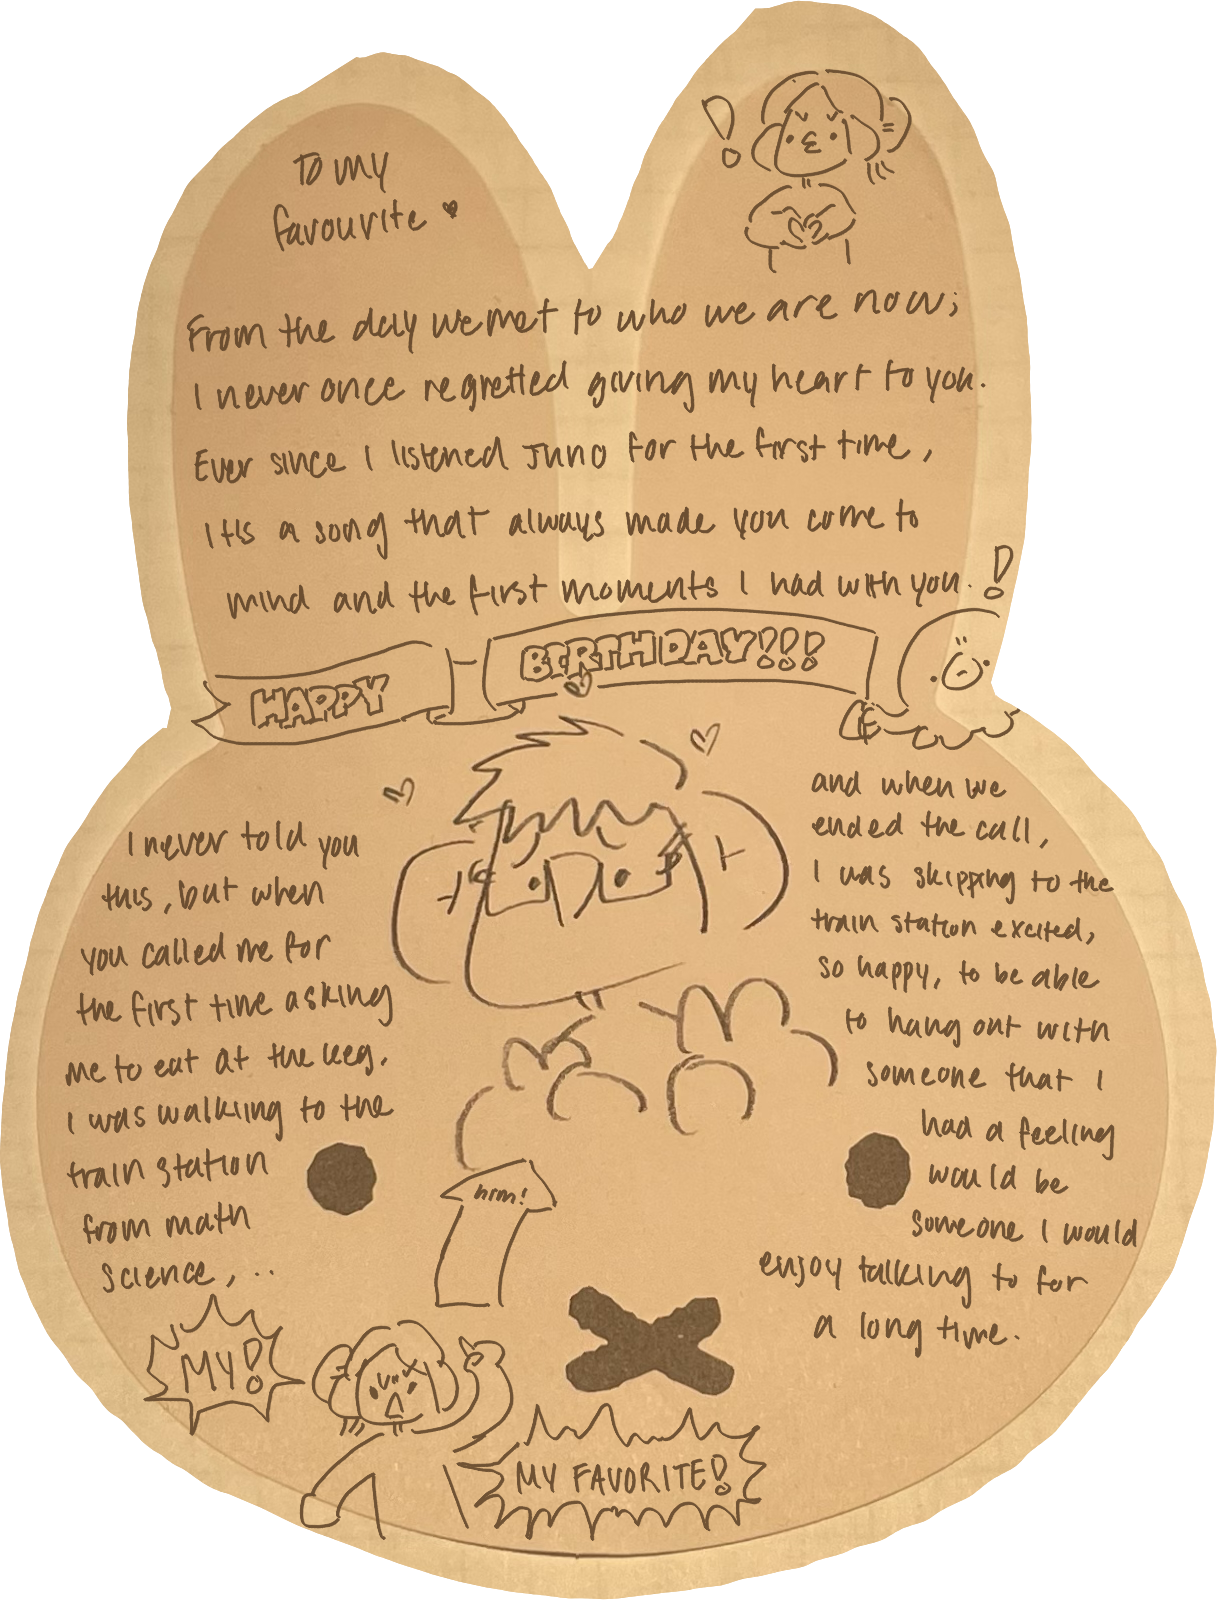 To my
favourite
From the day we met to who we are now;
I never once regretted giving my heart to you.
Ever since I listened Juno for the first time,
It is a song that always made you come to
mind and the first moments I had with you.
!
!
HAPPY BIRTHDAY!!!
I never told you
this, but when
you called me for
the first time asking
me to eat at the keg.
I was walking to the
train station
from math
science, ..
and when we
ended the call,
I was skipping to the
train station excited,
so happy, to be able
to hang out with
someone that I
had a feeling
would be
someone I would
enjoy talking to for
a long time.
him!
MY!
MY FAVORITE!